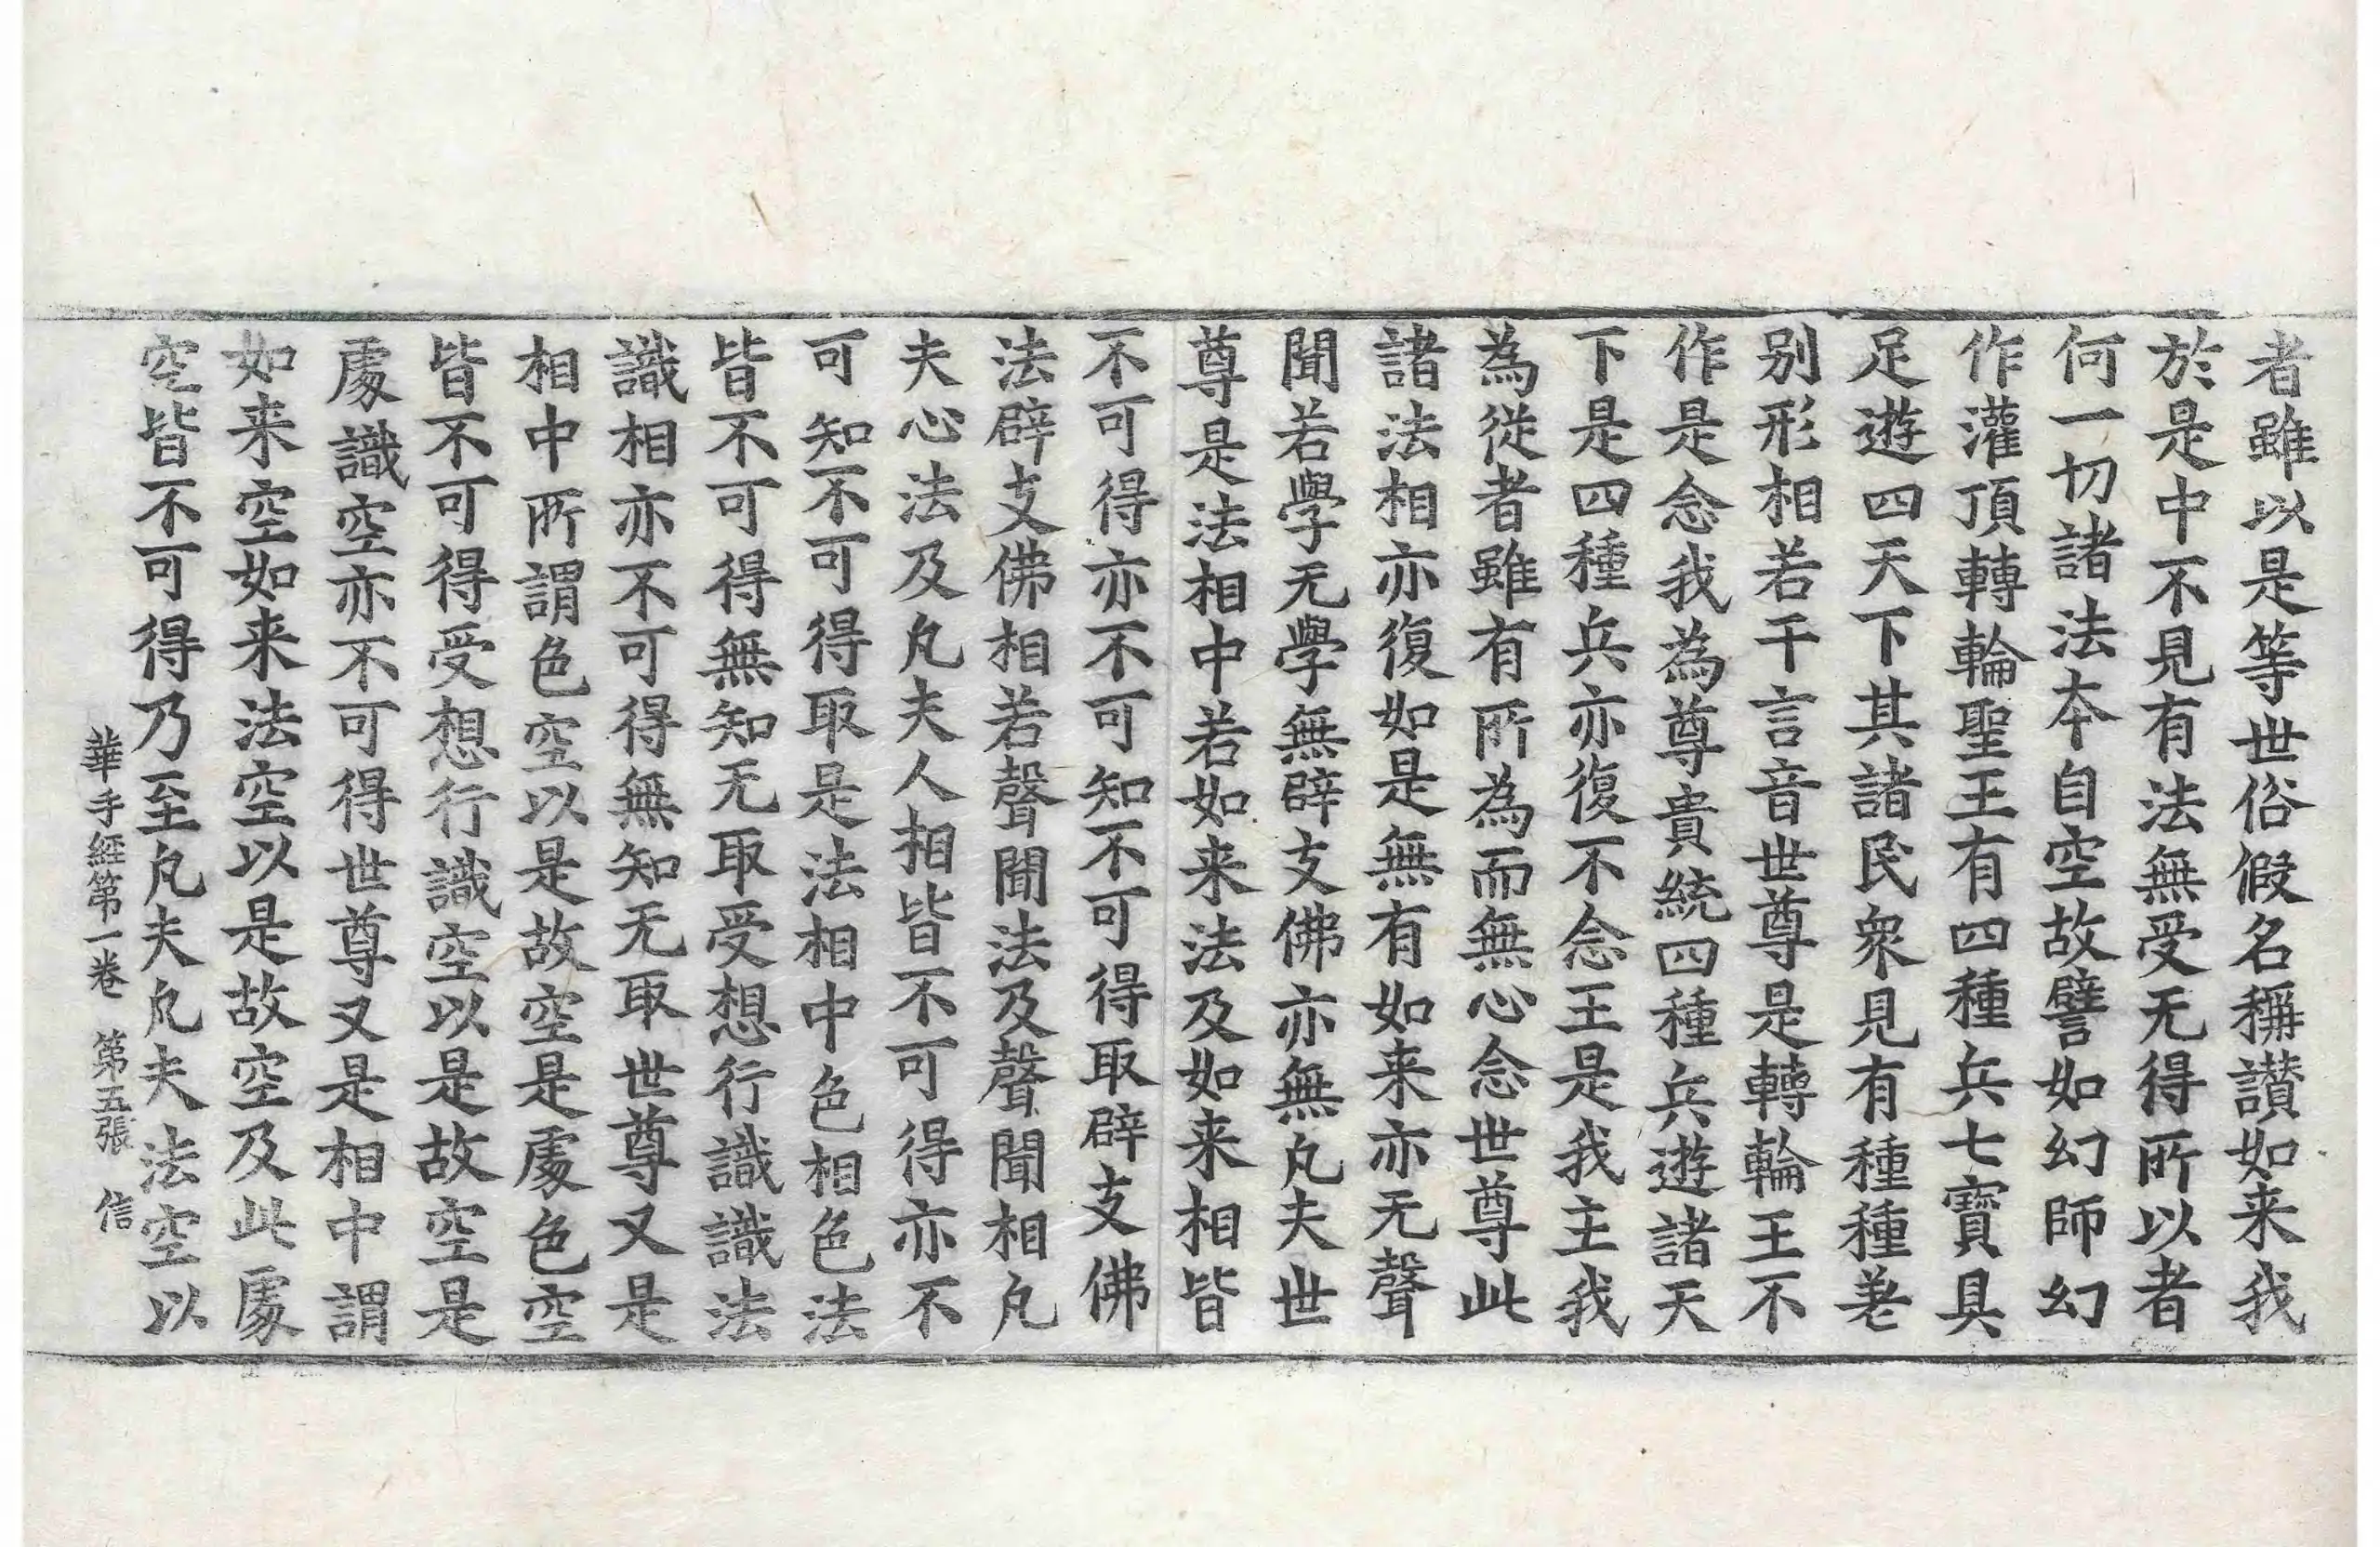 者雖以是等世俗假名稱讃如来我
於是中不見有法無受无得所以者
何一切諸法本自空故譬如幻師幻
作灌頂轉輪聖王有四種兵七寶具
足遊四天下其諸民衆見有種種差
别形相若干言音世尊是轉輪王不
作是念我為尊貴統四種兵遊諸天
下是四種兵亦復不念王是我主我
為從者雖有所為而無心念世尊此
諸法相亦復如是無有如来亦无聲
聞若學无學無辟支佛亦無凡夫世
尊是法相中若如来法及如来相皆
不可得亦不可知不可得取辟支佛
法辟支佛相若聲聞法及聲聞相凡
夫心法及凡夫人相皆不可得亦不
可知不可得取是法相中色相色法
皆不可得無知无取受想行識識法
識相亦不可得無知无取世尊又是
相中所謂色空以是故空是處色空
皆不可得受想行識空以是故空是
處識空亦不可得世尊又是相中謂
如来空如来法空以是故空及此處
空皆不可得乃至凡夫凡夫法空以
華手經第一卷 第五張 信